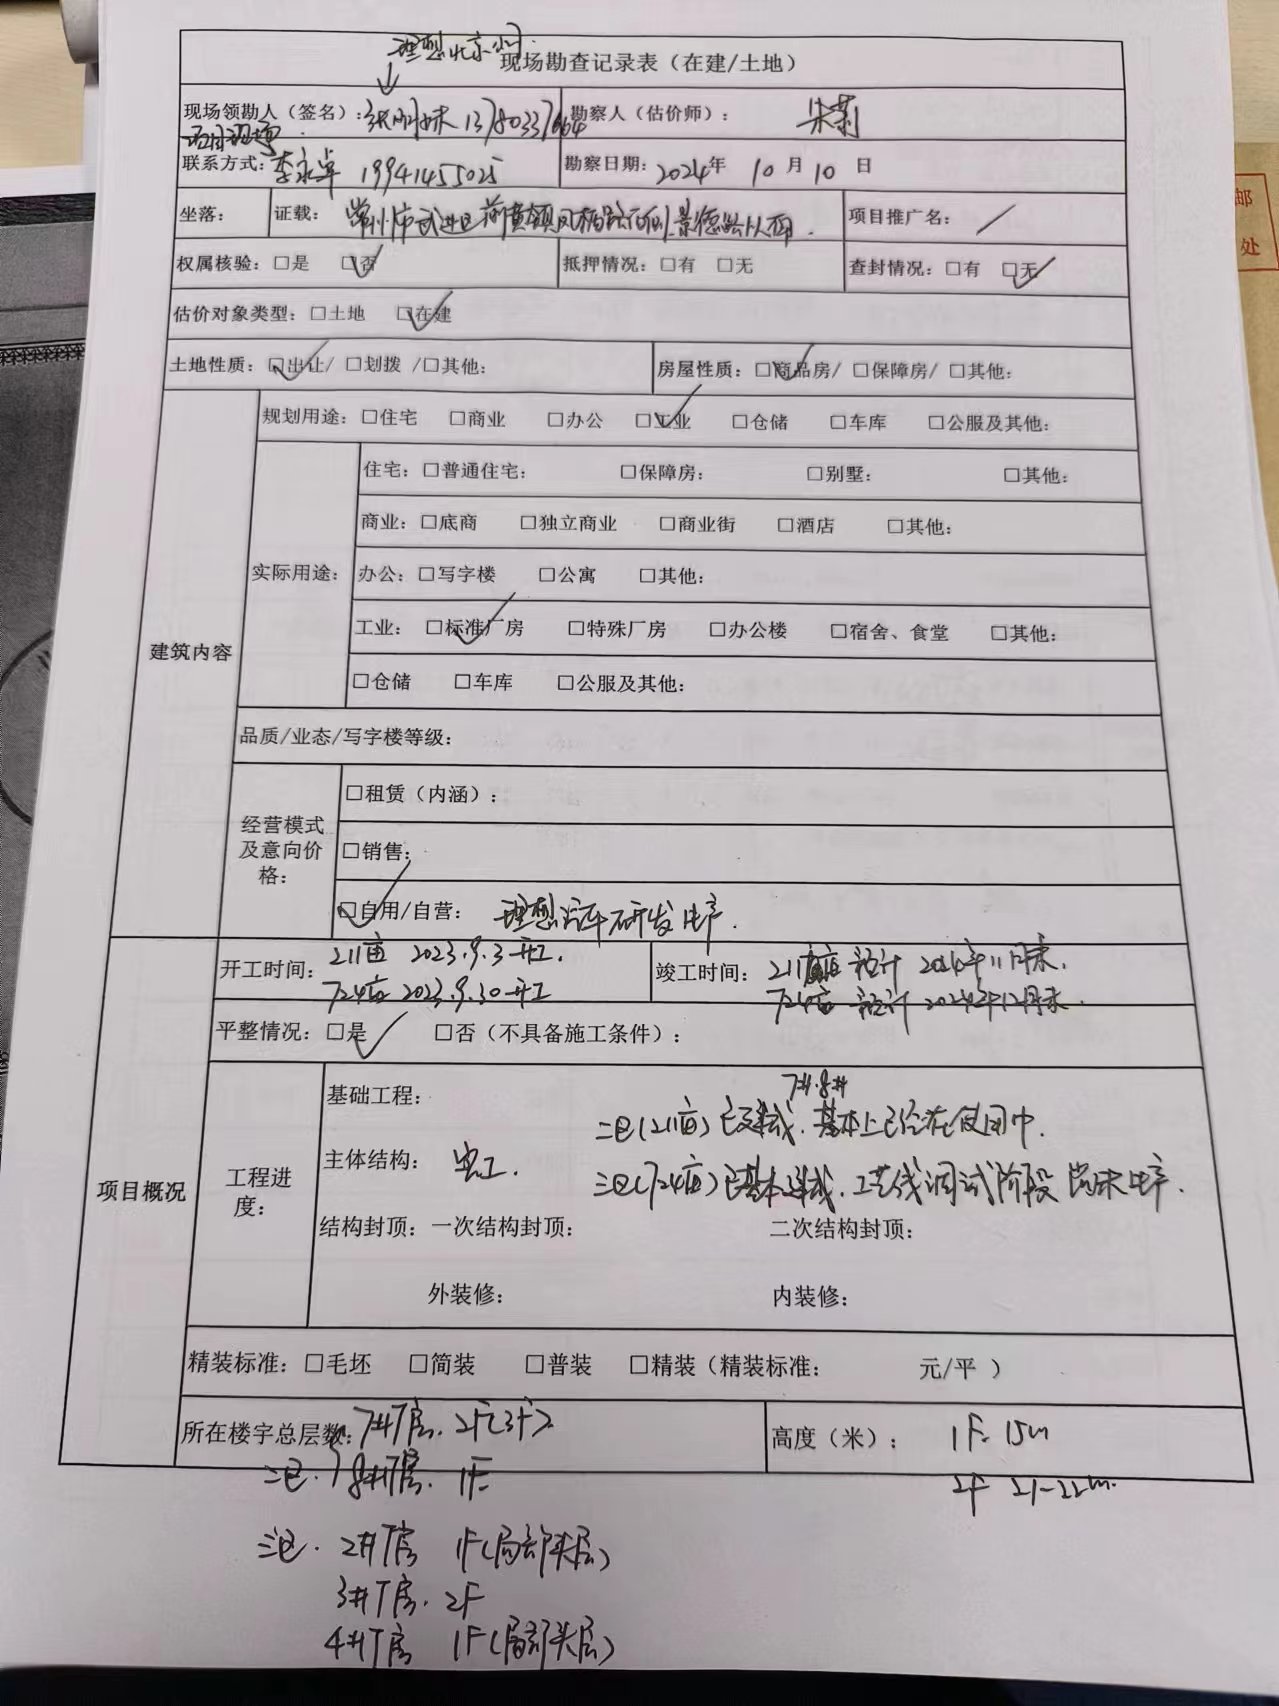 理想北京公司
现场勘查记录表（在建/土地）
现场领勘人（签名）：张 妹 13780337664 勘察人（估价师）： 朱莉
项目现场
联系方式：李永卓 19941455025 勘察日期：2024年 10月10日
坐落： 证载： 常州市武进区前黄镇 路西侧、景德路以南. 项目推广名： /
权属核验：□是 ☑否 抵押情况：□有 □无 查封情况：□有 ☑无
估价对象类型：□土地 ☑在建
土地性质：☑出让/ □划拨 /□其他： 房屋性质：☑商品房/ □保障房/ □其他：
建筑内容
规划用途：□住宅 □商业 □办公 ☑工业 □仓储 □车库 □公服及其他：
实际用途：
住宅：□普通住宅： □保障房： □别墅： □其他：
商业：□底商 □独立商业 □商业街 □酒店 □其他：
办公：□写字楼 □公寓 □其他：
工业： ☑标准厂房 □特殊厂房 □办公楼 □宿舍、食堂 □其他：
□仓储 □车库 □公服及其他：
品质/业态/写字楼等级：
经营模式及意向价格：
□租赁（内涵）：
□销售：
☑自用/自营： 理想汽车研发生产.
项目概况
开工时间： 211亩 2023.9.3开工.
724亩 2023.9.30开工
竣工时间： 211亩 预计 2024年11月末.
724亩 预计 2024年12月末.
平整情况：☑是 □否（不具备施工条件）：
工程进度：
基础工程：
7#.8#
二包(211亩)已建成. 基本上已经在使用中.
主体结构： 完工.
三包(724亩)已基本建成. 工艺线调试阶段 尚未生产.
结构封顶：一次结构封顶： 二次结构封顶：
外装修： 内装修：
精装标准：□毛坯 □简装 □普装 □精装（精装标准： 元/平 ）
所在楼宇总层数： 7#厂房. 2F(3F) 高度（米）： 1F. 15m
二包. 8#厂房. 1F 2F 21-22m.
三包. 2#厂房 1F(局部夹层)
3#厂房. 2F
4#厂房 1F(局部夹层)